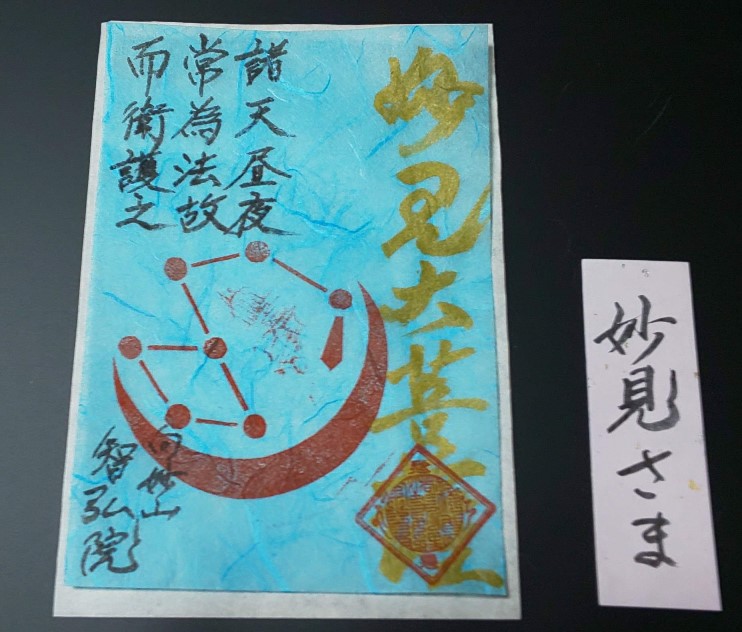 妙見大菩薩
諸天昼夜
常為法故
而衛護之
向妙山
智弘院
妙見さま